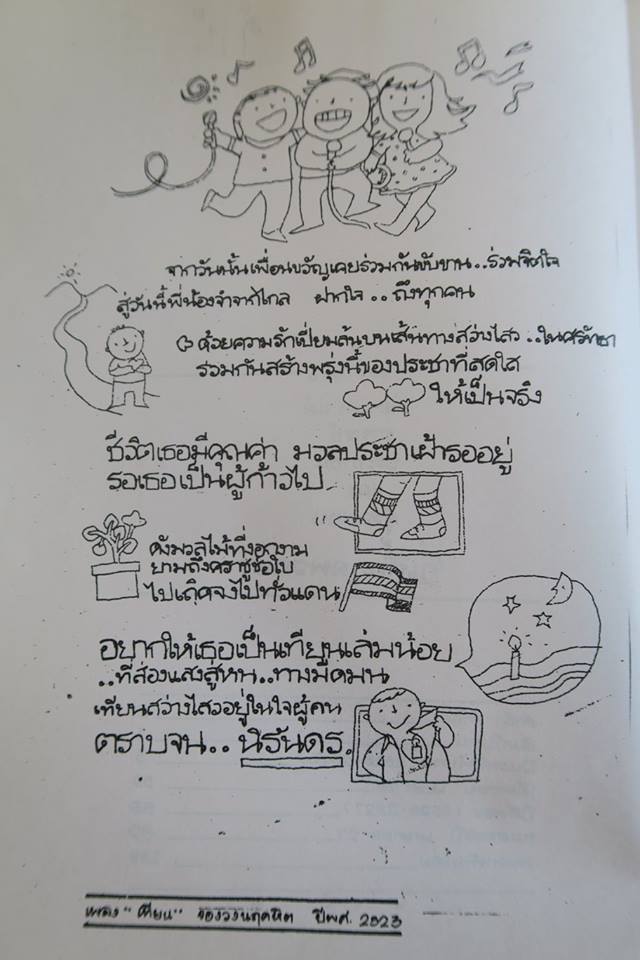 จากวันนั้นเพื่อนขวัญเคยร่วมกันขับขาน..ร่วมจิตใจ
สู่วันนี้พี่น้องจำจากไกล ฝากใจ..ถึงทุกคน
ด้วยความรักเปี่ยมล้นบนเส้นทางสว่างไสว..ในศรัทธา
ร่วมกันสร้างพรุ่งนี้ของประชาที่สดใส
ให้เป็นจริง
ชีวิตเธอมีคุณค่า มวลประชาเฝ้ารออยู่
รอเธอเป็นผู้ก้าวไป
ดังมวลไม้ที่งอกงาม
ยามถึงคราชูช่อใบ
ไปเถิดจงไปทั่วแดน
อยากให้เธอเป็นเทียนเล่มน้อย
..ที่ส่องแสงสู่หน..ทางมืดมน
เทียนสว่างไสวอยู่ในใจผู้คน
ตราบจน.. นิรันดร.
เพลง "เทียน" ของวง ปีพศ. 2523